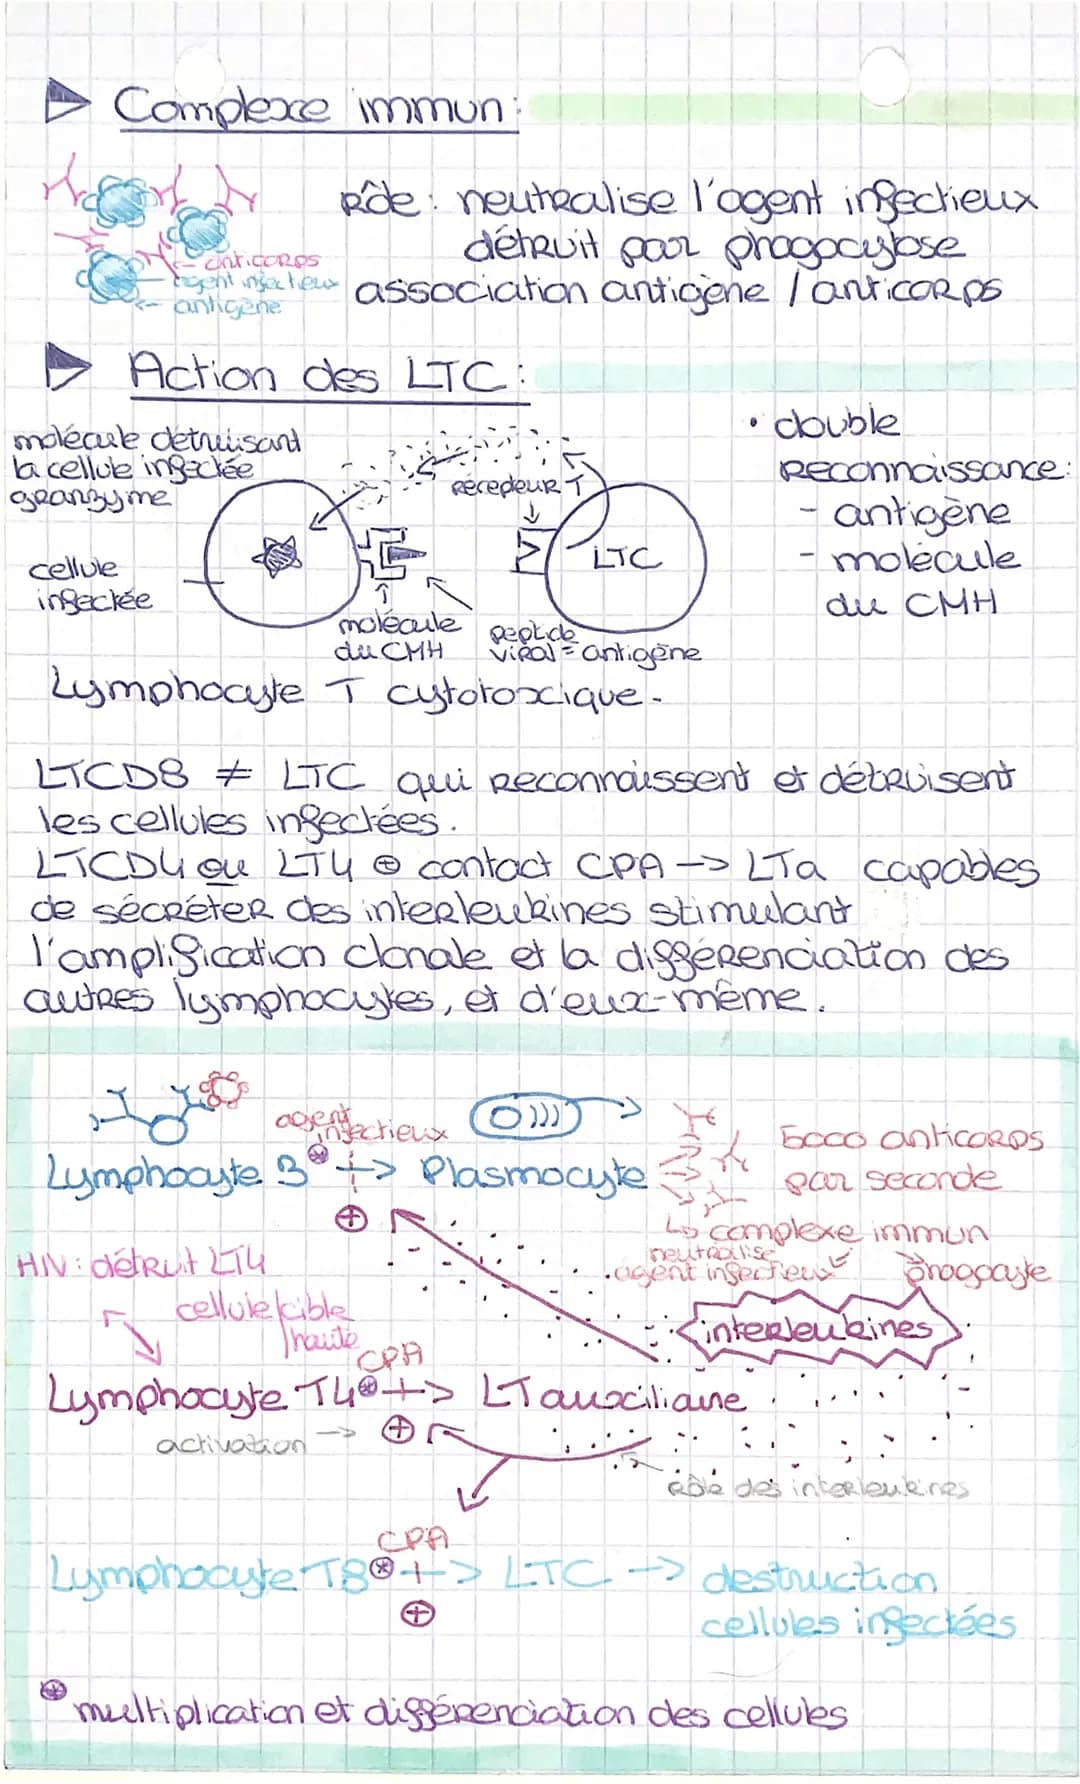 Complexe immun:
Rôle : neutralise l'agent infectieux
détruit par phagocytose
anticorps
agent infectieux
antigène
association antigène / anticorps
Action des LTC :
molécule détruisant
la cellule infectée
granzyme
récepteur T
LTC
cellule
infectée
molécule
du CMH
peptide
viral = antigène
• double
reconnaissance:
- antigène
- molécule
du CMH
Lymphocyte T cytotoxique.
LTCD8 ≠ LTC qui reconnaissent et détruisent
les cellules infectées.
LTCD4 ou LT4 ⊕ contact CPA -> LTa capables
de sécréter des interleukines stimulant
l'amplification clonale et la différenciation des
autres lymphocytes, et d'eux-même.
agent
infectieux
Lymphocyte B⊛ +> Plasmocyte
⊕
5000 anticorps
par seconde
↳ complexe immun
neutralise
agent infectieux
phagocyte
HIV : détruit LT4
cellule cible
haute
interleukines
CPA
Lymphocyte T4⊛ +> LT auxiliaire
activation -> ⊕
rôle des interleukines
CPA
Lymphocyte T8⊛ +> LTC -> destruction
cellules infectées
⊕
⊛ multiplication et différenciation des cellules